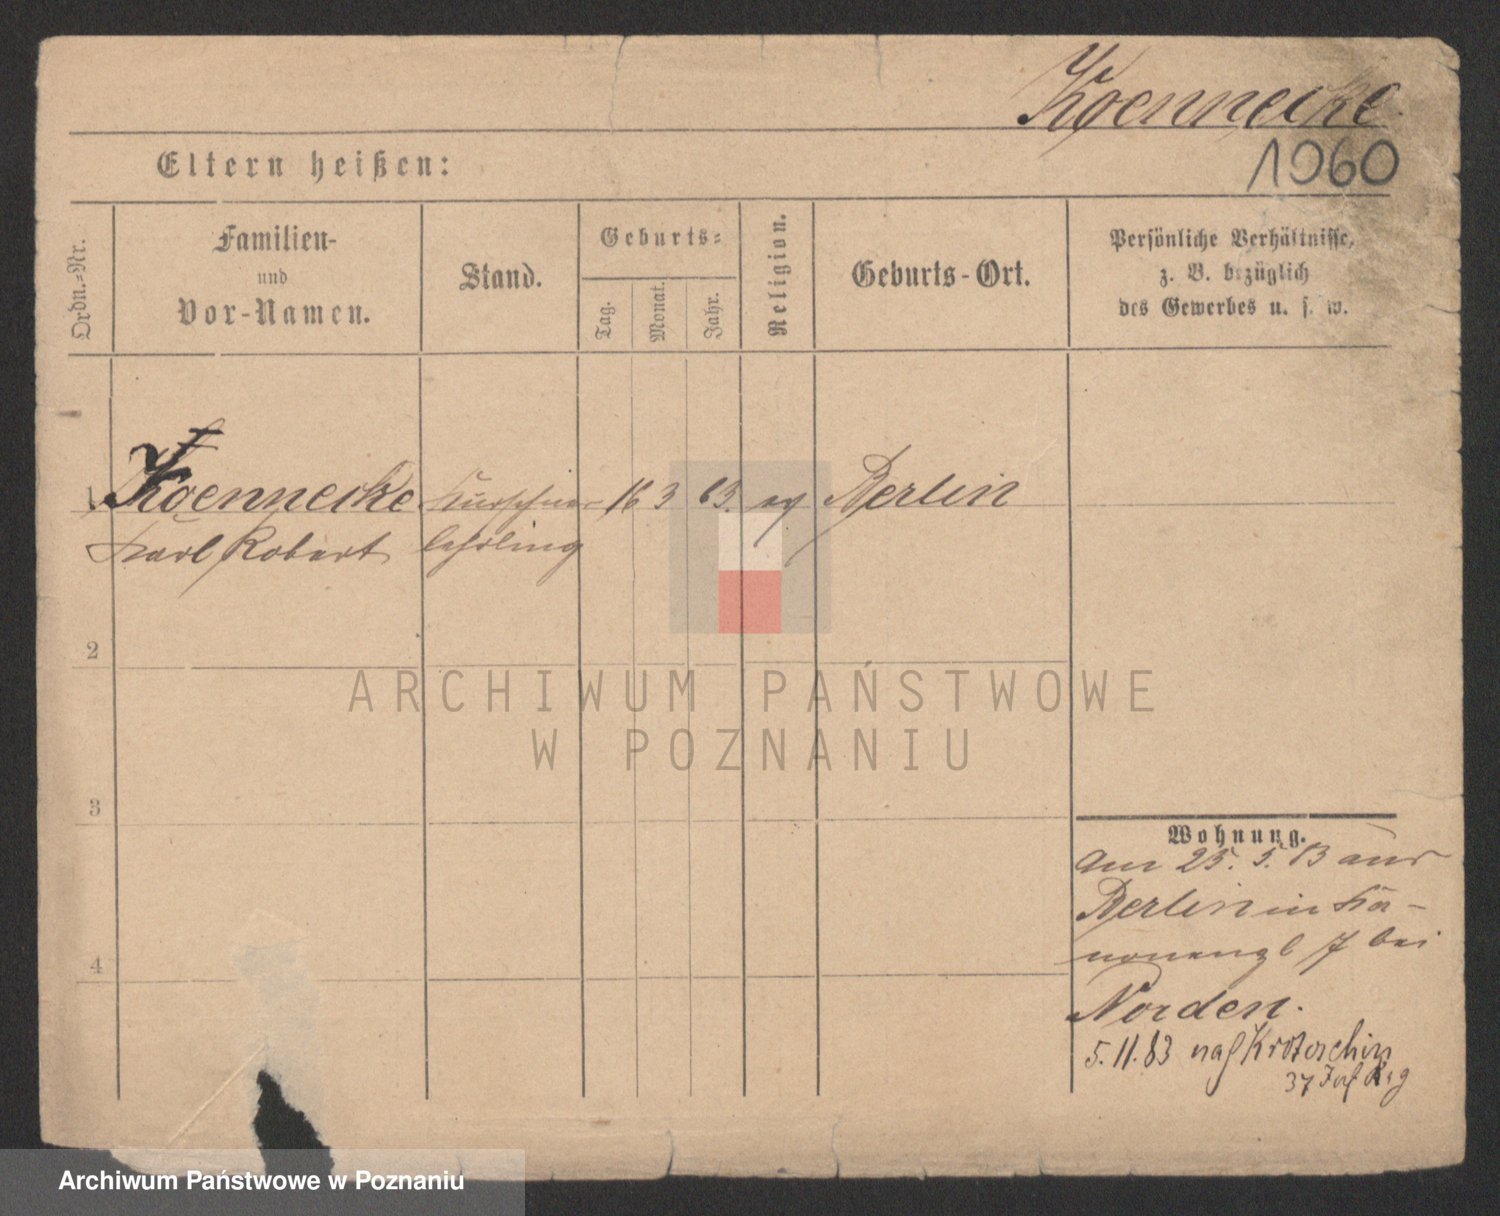 Koennecke.
1060
Eltern heißen:
Ordn.-Nr.
Familien-
und
Vor-Namen.
Stand.
Geburts-
Tag.
Monat.
Jahr.
Religion.
Geburts-Ort.
Persönliche Verhältnisse,
z. B. bezüglich
des Gewerbes u. s. w.
1 Koennecke Kürschner 16 3 63. ev Berlin
Karl Robert lehrling
2
3
4
Wohnung.
am 25. 5. 83 aus
Berlin in Ka-
nonenpl 7 bei
Norden.
5.11.83 nach Krotoschin
37 Inf Reg
ARCHIWUM PAŃSTWOWE
W POZNANIU
Archiwum Państwowe w Poznaniu